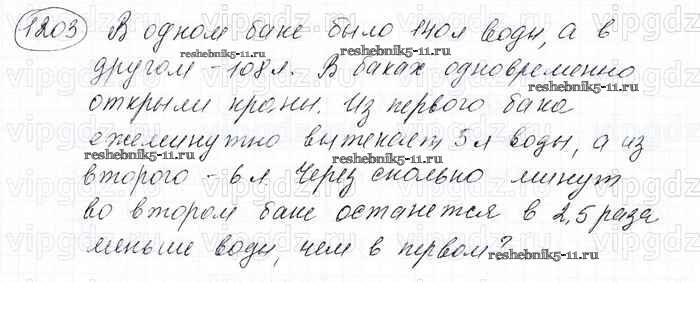 1203 В одном баке было 140л воды, а в
другом – 108л. В баках одновременно
открыли краны. Из первого бака
ежеминутно вытекает 5 л воды, а из
второго – 6 л. Через сколько минут
во втором баке останется в 2,5 раза
меньше воды, чем в первом?
www.reshebnik5-11.ru
www.reshebnik5-11.ru
reshebnik5-11.ru
reshebnik5-11.ru
reshebnik5-11.ru
www.reshebnik5-11.ru
vipgdz